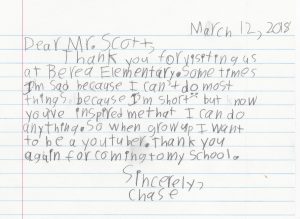 March 12, 2018
Dear Mr. Scott,
Thank you for visiting us
at Berea Elementary. Some times
I'm sad because I can't do most
things because I'm short" but now
you've inspired me that I can do
anything. So when grow up I want
to be a youtuber. Thank you
again for coming to my school.
Sincerely,
Chase